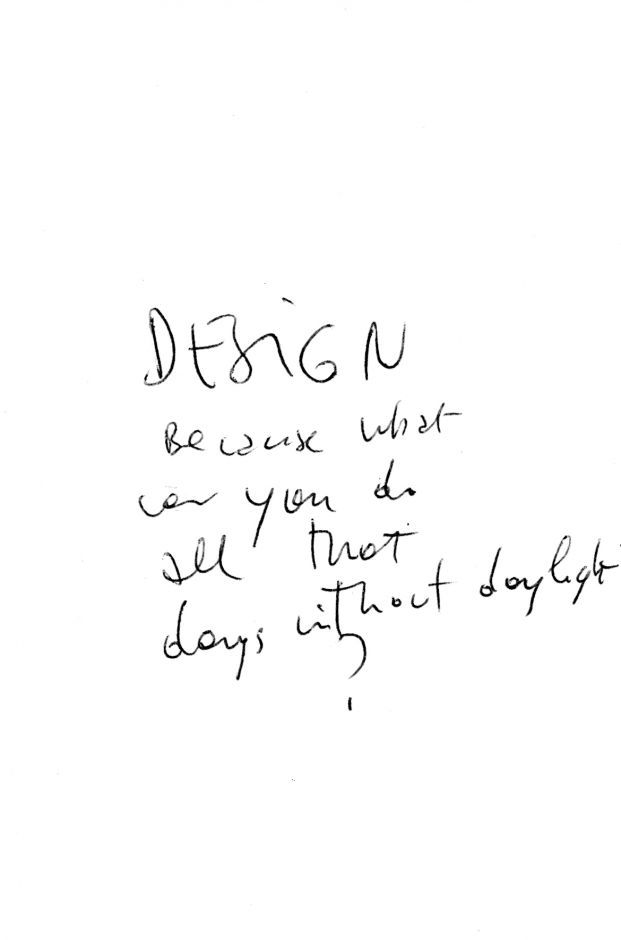 DESIGN
Because what
can you do
all that
days without daylight
?